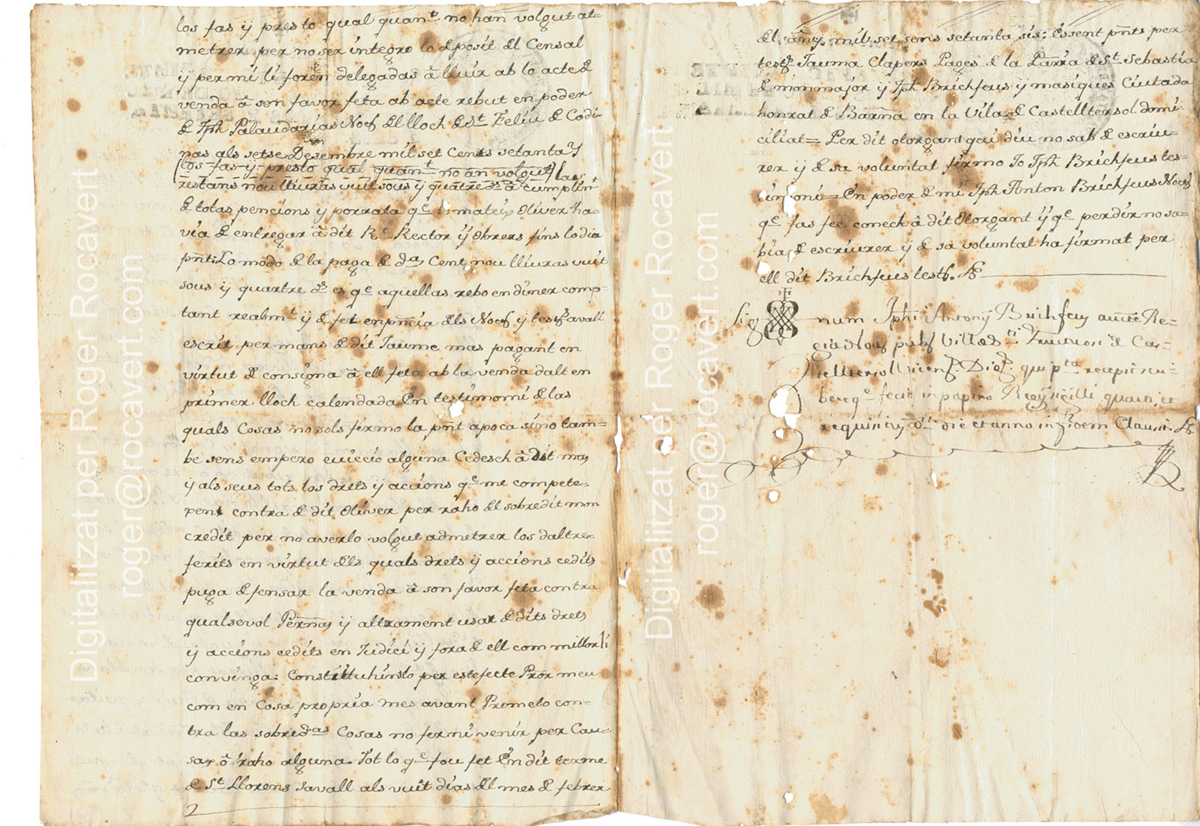 los fas ÿ presto qual quan.t no han volgut at-
metrer per no ser integro lo deposit del Censal
ÿ per mi li foren delegadas â lluir ab lo acte de
venda â son favor feta ab acte rebut en poder
de Jph Palaudarias Not. del lloch de S.t Feliu de Codi
nas als setse Desembre mil set Cents setanta ÿ
(los fas ÿ presto qual quan.t no an volgut) las
restans nou lliuras vuit sous ÿ quatre d.s â cumplim.t
de totas pencions ÿ porrata q.e lo mateix Oliver ha-
via de entregar â dit R.t Rector ÿ Obrers fins lo dia
pñt: Lo modo de la paga de d.as Cent nou lliuras vuit
sous ÿ quartre d.s es q.e aquellas rebo en diner comp-
tant realm.t ÿ de fet en pñcia dels Not. ÿ test. avall
escrit per mans de dit Jaume mas pagant en
virtut de consigna â ell feta ab la venda dalt en
primer lloch calendada En testimoni de las
quals Cosas no sols fermo la pñt apoca sino tam-
be sens empero eviccio alguna Cedesch â dit mas
ÿ als seus tots los drets ÿ accions q.e me compete-
pent contra de dit Oliver per raho del sobredit mon
credit per no averlo volgut admetrer los daltre-
ferits en virtut dels quals drets ÿ accions cedits
puga defensar la venda â son favor feta contra
qualsevol Perñas ÿ altrament usar de dits drets
ÿ accions cedits en Judici ÿ fora de ell com millor li
convinga: Constituhinlo per est efecte Pror meu
com en Cosa propria mes avant Prometo con-
tra las sobred.as Cosas no fermi venir per Cau-
sa, ô raho alguna. Tot lo q.e fou fet En dit terme
de S.t Llorens Savall als vuit dias del mes de febrer
del añy mil set sens setanta sis: Essent pñts per
test. Jauma Clapers Pages de la Parra de S.t Sebastia
de monmajor ÿ Jph Brichfeus ÿ masiques Ciutada
honrat de Barña en la Vila de Castelltersol domi-
ciliat= Per dit otorgant qui diu no sab de escriu-
rer ÿ de sa voluntat firmo Jo Jph Brichfeus tes-
timoni= En poder de mi Jph Anton Brichfeus Not.
q.e fas fe conech â dit Otorgant ÿ q.e per dir no sa-
bia de escriurer ÿ de sa voluntat ha firmat per
ell dit Brichfeus test.
Sig num Jphi Antonÿ Brichfeus auctte Re-
gia Not. pub.
recepi
in papiro Regÿ sigilli quarti, et
requisitus die et anno in Clausi.
Digitalitzat per Roger Rocavert
roger@rocavert.com
Digitalitzat per Roger Rocavert
roger@rocavert.com